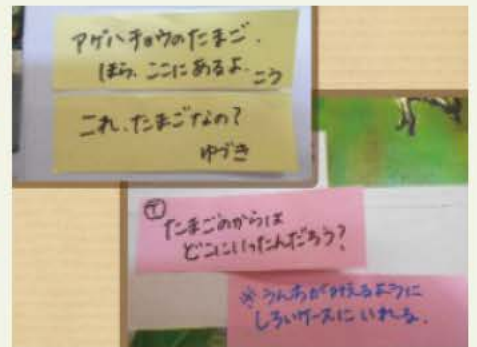 アゲハチョウのたまご、
ほら、ここにあるよ。こう
これ、たまごなの？
ゆづき
Ⓣ
たまごのからは
どこにいったんだろう？
※うんちが見えるように
しろいケースにいれる。